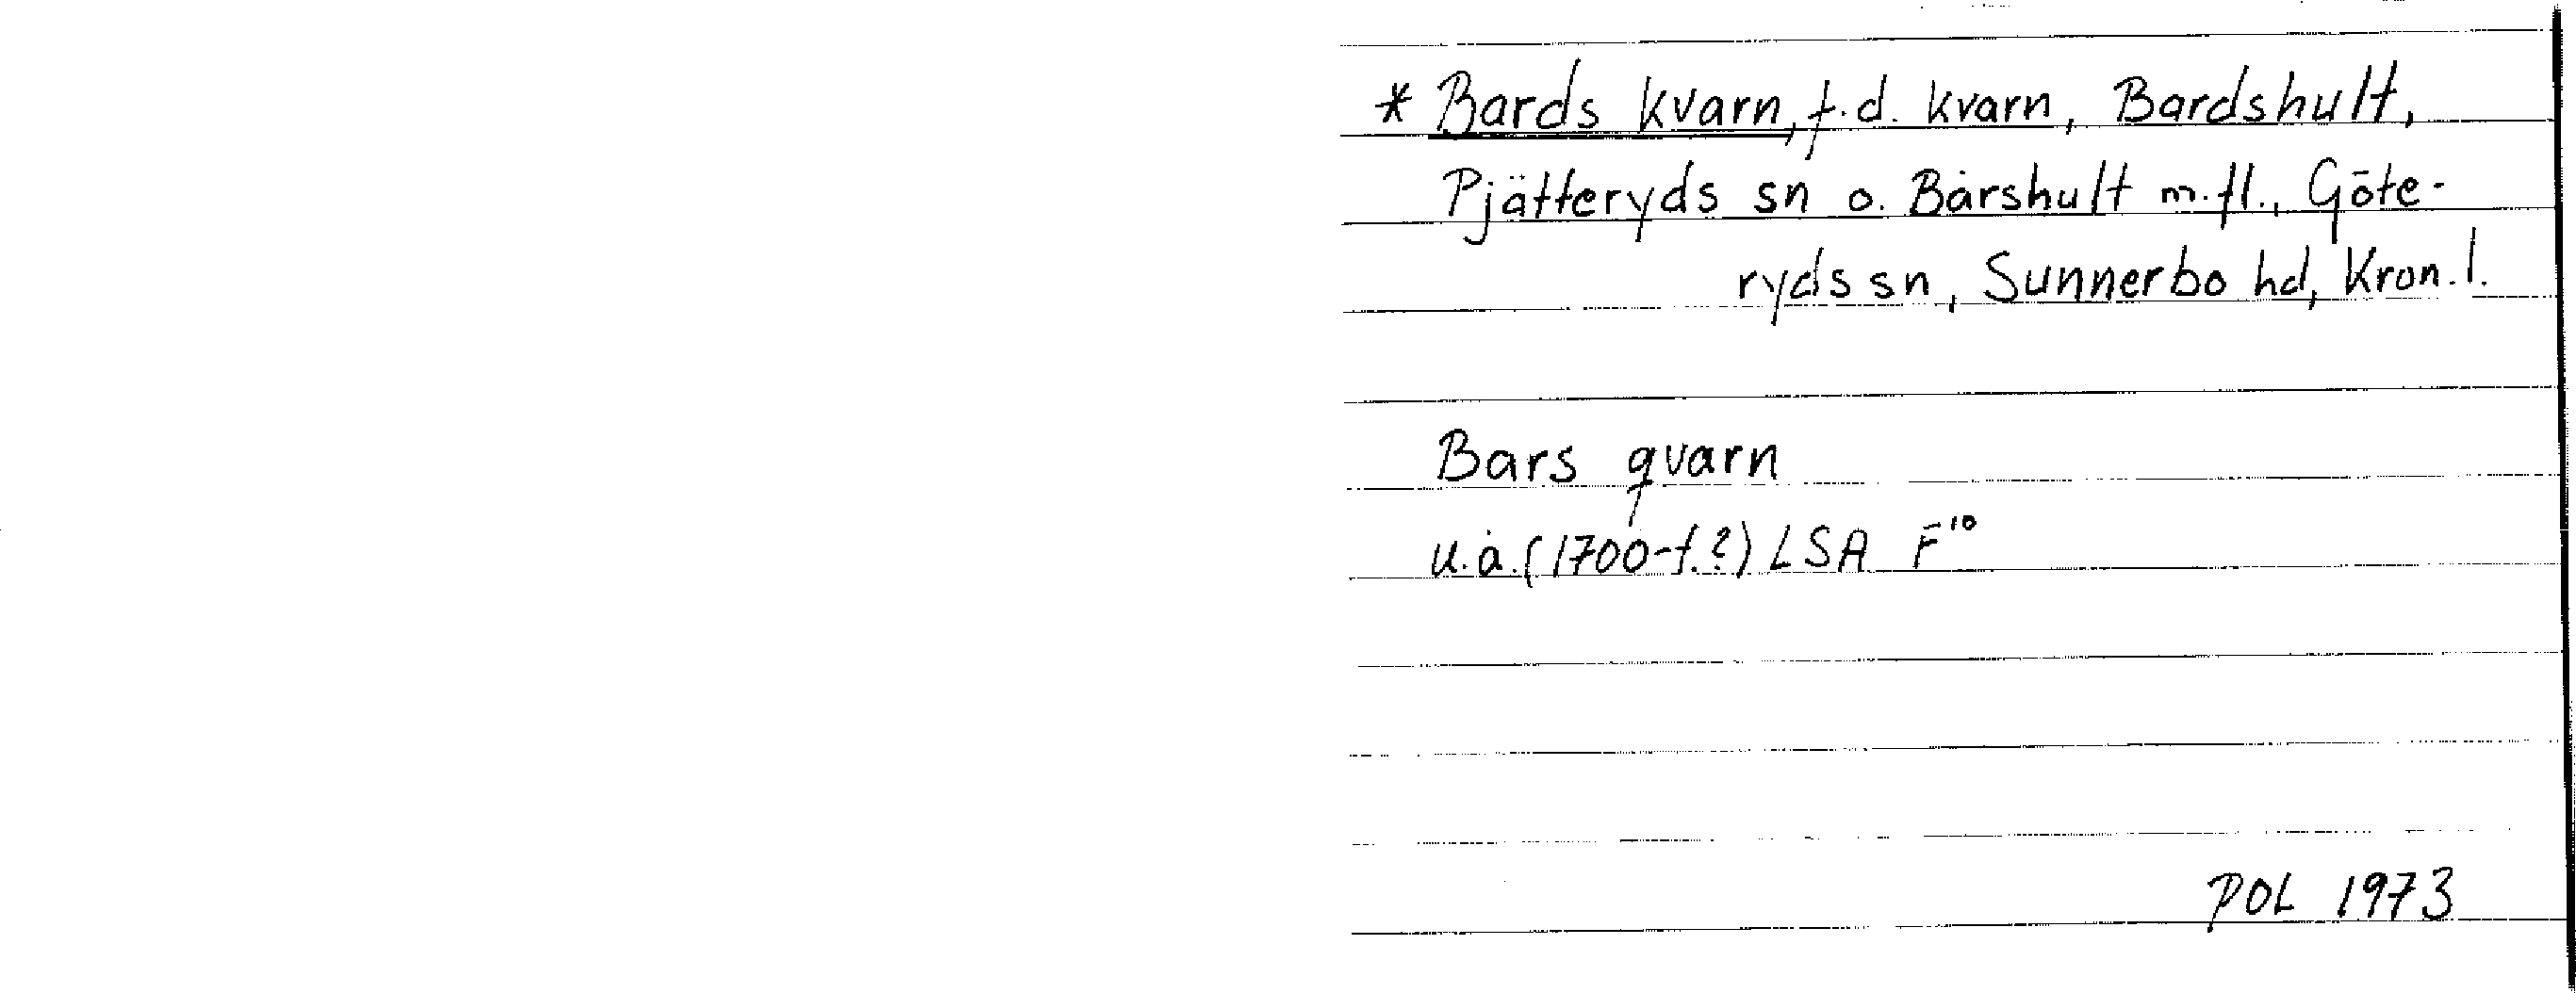 * Bards kvarn, f.d. kvarn, Bardshult,
Pjätteryds sn o. Bårshult m.fl., Göte-
ryds sn, Sunnerbo hd, Kron. l.
Bars qvarn
u.å. (1700-t.?) LSA F¹⁰
POL 1973